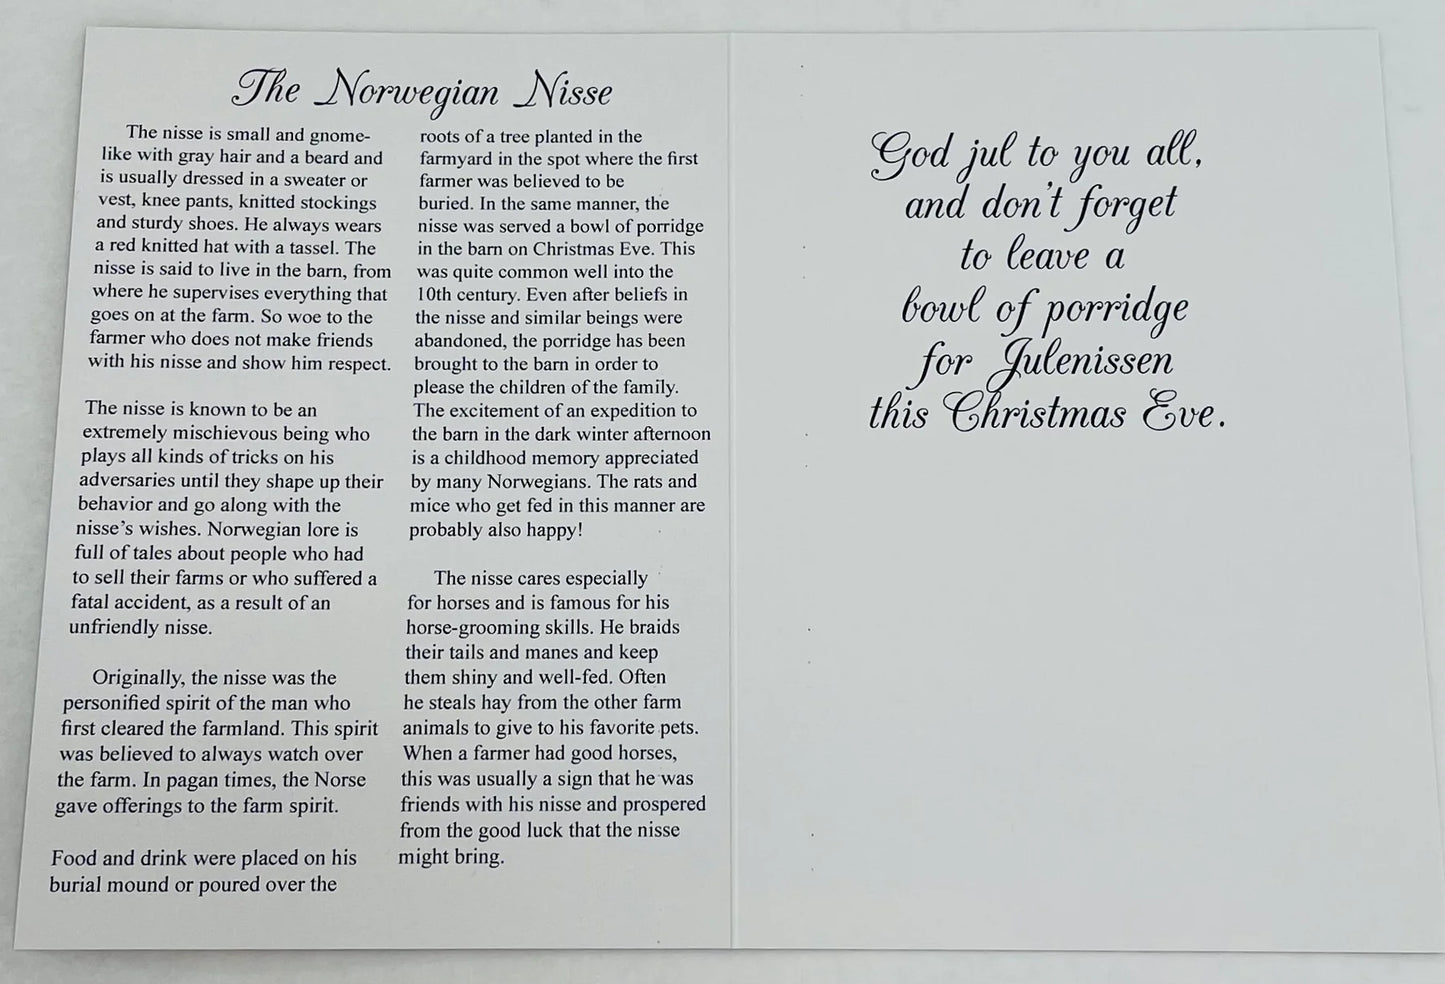 The Norwegian Nisse
The nisse is small and gnome-
like with gray hair and a beard and
is usually dressed in a sweater or
vest, knee pants, knitted stockings
and sturdy shoes. He always wears
a red knitted hat with a tassel. The
nisse is said to live in the barn, from
where he supervises everything that
goes on at the farm. So woe to the
farmer who does not make friends
with his nisse and show him respect.
The nisse is known to be an
extremely mischievous being who
plays all kinds of tricks on his
adversaries until they shape up their
behavior and go along with the
nisse's wishes. Norwegian lore is
full of tales about people who had
to sell their farms or who suffered a
fatal accident, as a result of an
unfriendly nisse.
Originally, the nisse was the
personified spirit of the man who
first cleared the farmland. This spirit
was believed to always watch over
the farm. In pagan times, the Norse
gave offerings to the farm spirit.
Food and drink were placed on his
burial mound or poured over the
roots of a tree planted in the
farmyard in the spot where the first
farmer was believed to be
buried. In the same manner, the
nisse was served a bowl of porridge
in the barn on Christmas Eve. This
was quite common well into the
10th century. Even after beliefs in
the nisse and similar beings were
abandoned, the porridge has been
brought to the barn in order to
please the children of the family.
The excitement of an expedition to
the barn in the dark winter afternoon
is a childhood memory appreciated
by many Norwegians. The rats and
mice who get fed in this manner are
probably also happy!
The nisse cares especially
for horses and is famous for his
horse-grooming skills. He braids
their tails and manes and keep
them shiny and well-fed. Often
he steals hay from the other farm
animals to give to his favorite pets.
When a farmer had good horses,
this was usually a sign that he was
friends with his nisse and prospered
from the good luck that the nisse
might bring.
God jul to you all,
and don't forget
to leave a
bowl of porridge
for Julenissen
this Christmas Eve.